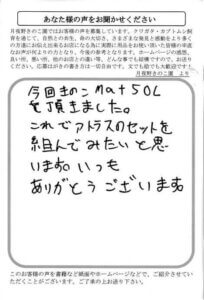 あなた様の声をお聞かせください
月夜野きのこ園ではお客様の声を募集しています。クワガタ・カブトムシ飼
育を通じ、自然との共生、命の大切さ、さまざまな発見と感動をより多く
の方達にお伝え出来るお店になる為に実際に用品をお使い頂いた皆様の率直
なお声が何よりのたよりとなり、今後の参考となります。ホームページの感想、
良い所、悪い所、他のお店との違い等、どんな事でも結構ですので、お送り
ください。応募はがきの書き方は一切自由です。文でも絵でも大歓迎です！
月夜野きのこ園 より
今回きのこMat50L
を頂きました。
これでフトラスのセットを
組んでみたいと思
います。いつも
ありがとうございます
このお客様の声を書籍など紙面やホームページなどで、ご紹介させてい
ただくことがございます。ご了承の上お送り下さい。